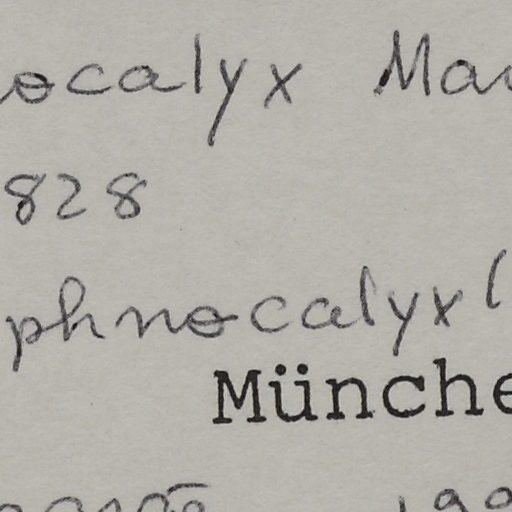 ocalyx Mar
828
phnocalyx (
Münche
199